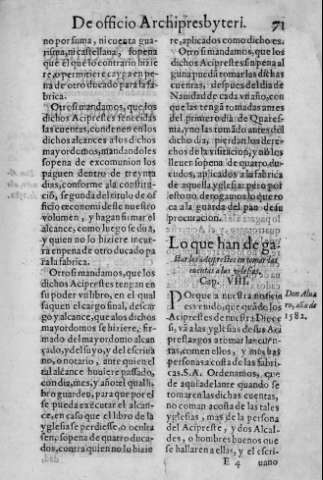 De officio Archipresbyteri. 71
no por suma, ni cuenta gua-
risma, ni castellana, sopena
que el que lo contrario hizie
re, o permitiere caygа en pe-
na de otro ducado para la fa-
brica.
Otrosi mandamos, que los
dichos Aciprestes fenecidas
las cuentas, condenen en los
dichos alcances a los dichos
mayordomos, mandandoles
sopena de excomunion los
paguen dentro de treynta
dias, conforme a la constitu-
ciõ, segunda del titulo de of
ficio œconomi deste nuestro
volumen, y hagan firmar el
alcance, como luego se dira,
y quien no lo hiziere incur
ra en pena de otro ducado pa
ra la fabrica.
Otrosi mandamos, que los
dichos Aciprestes tengan en
su poder vn libro, en el qual
saquen el cargo final, descar-
go y alcance, que a los dichos
mayordomos se hiziere, fir-
mado del mayordomo alcan
çado, y del suyo, y del escriua
no, o notario, ante quien el
tal alcance huuiere passado,
con dia, mes, y año, el qual li-
bro guarden, para que por el
se pueda executar el alcan-
ce, en caso que el libro de la
yglesia se perdiesse, o oculta
sen, sopena de quatro duca-
dos, contra quien no lo hizie
re, aplicados como dicho es.
Otrosi mandamos, que los
dichos Aciprestes sin pena al
guna pueda tomar las dichas
cuentas, despues del dia de
Nauidad de cada vn año, con
que las tengã tomadas antes
del primero dia de Quares-
ma, y no las tomãdo antes del
dicho dia, pierdan los dere-
chos de la visitacion, y no les
lleuen sopena de quatro du-
cados, aplicados a la fabrica
de aquella yglesia: pero por
procuracion.
Lo que han de ga-
star los aciprestes en tomar las
cuentas a las yglesias.
Cap. VIII.
Porque a nuestra noticia
es venido, que quãdo los
Aciprestes de nuestra Dioce
si, vã a las yglesias de sus Aci
prestazgos a tomar las cuen-
tas, comen ellos, y muchas
personas a costa de las fabri-
cas. S.A. Ordenamos, que
de aqui adelante quando se
tomaren las dichas cuentas,
no coman a costa de las tales
yglesias, mas de la persona
del Acipreste, y dos Alcal-
des, o hombres buenos que
se hallaren a ellas, y el escri-
Don Alua
ro, año de
1582.
E 4 uano